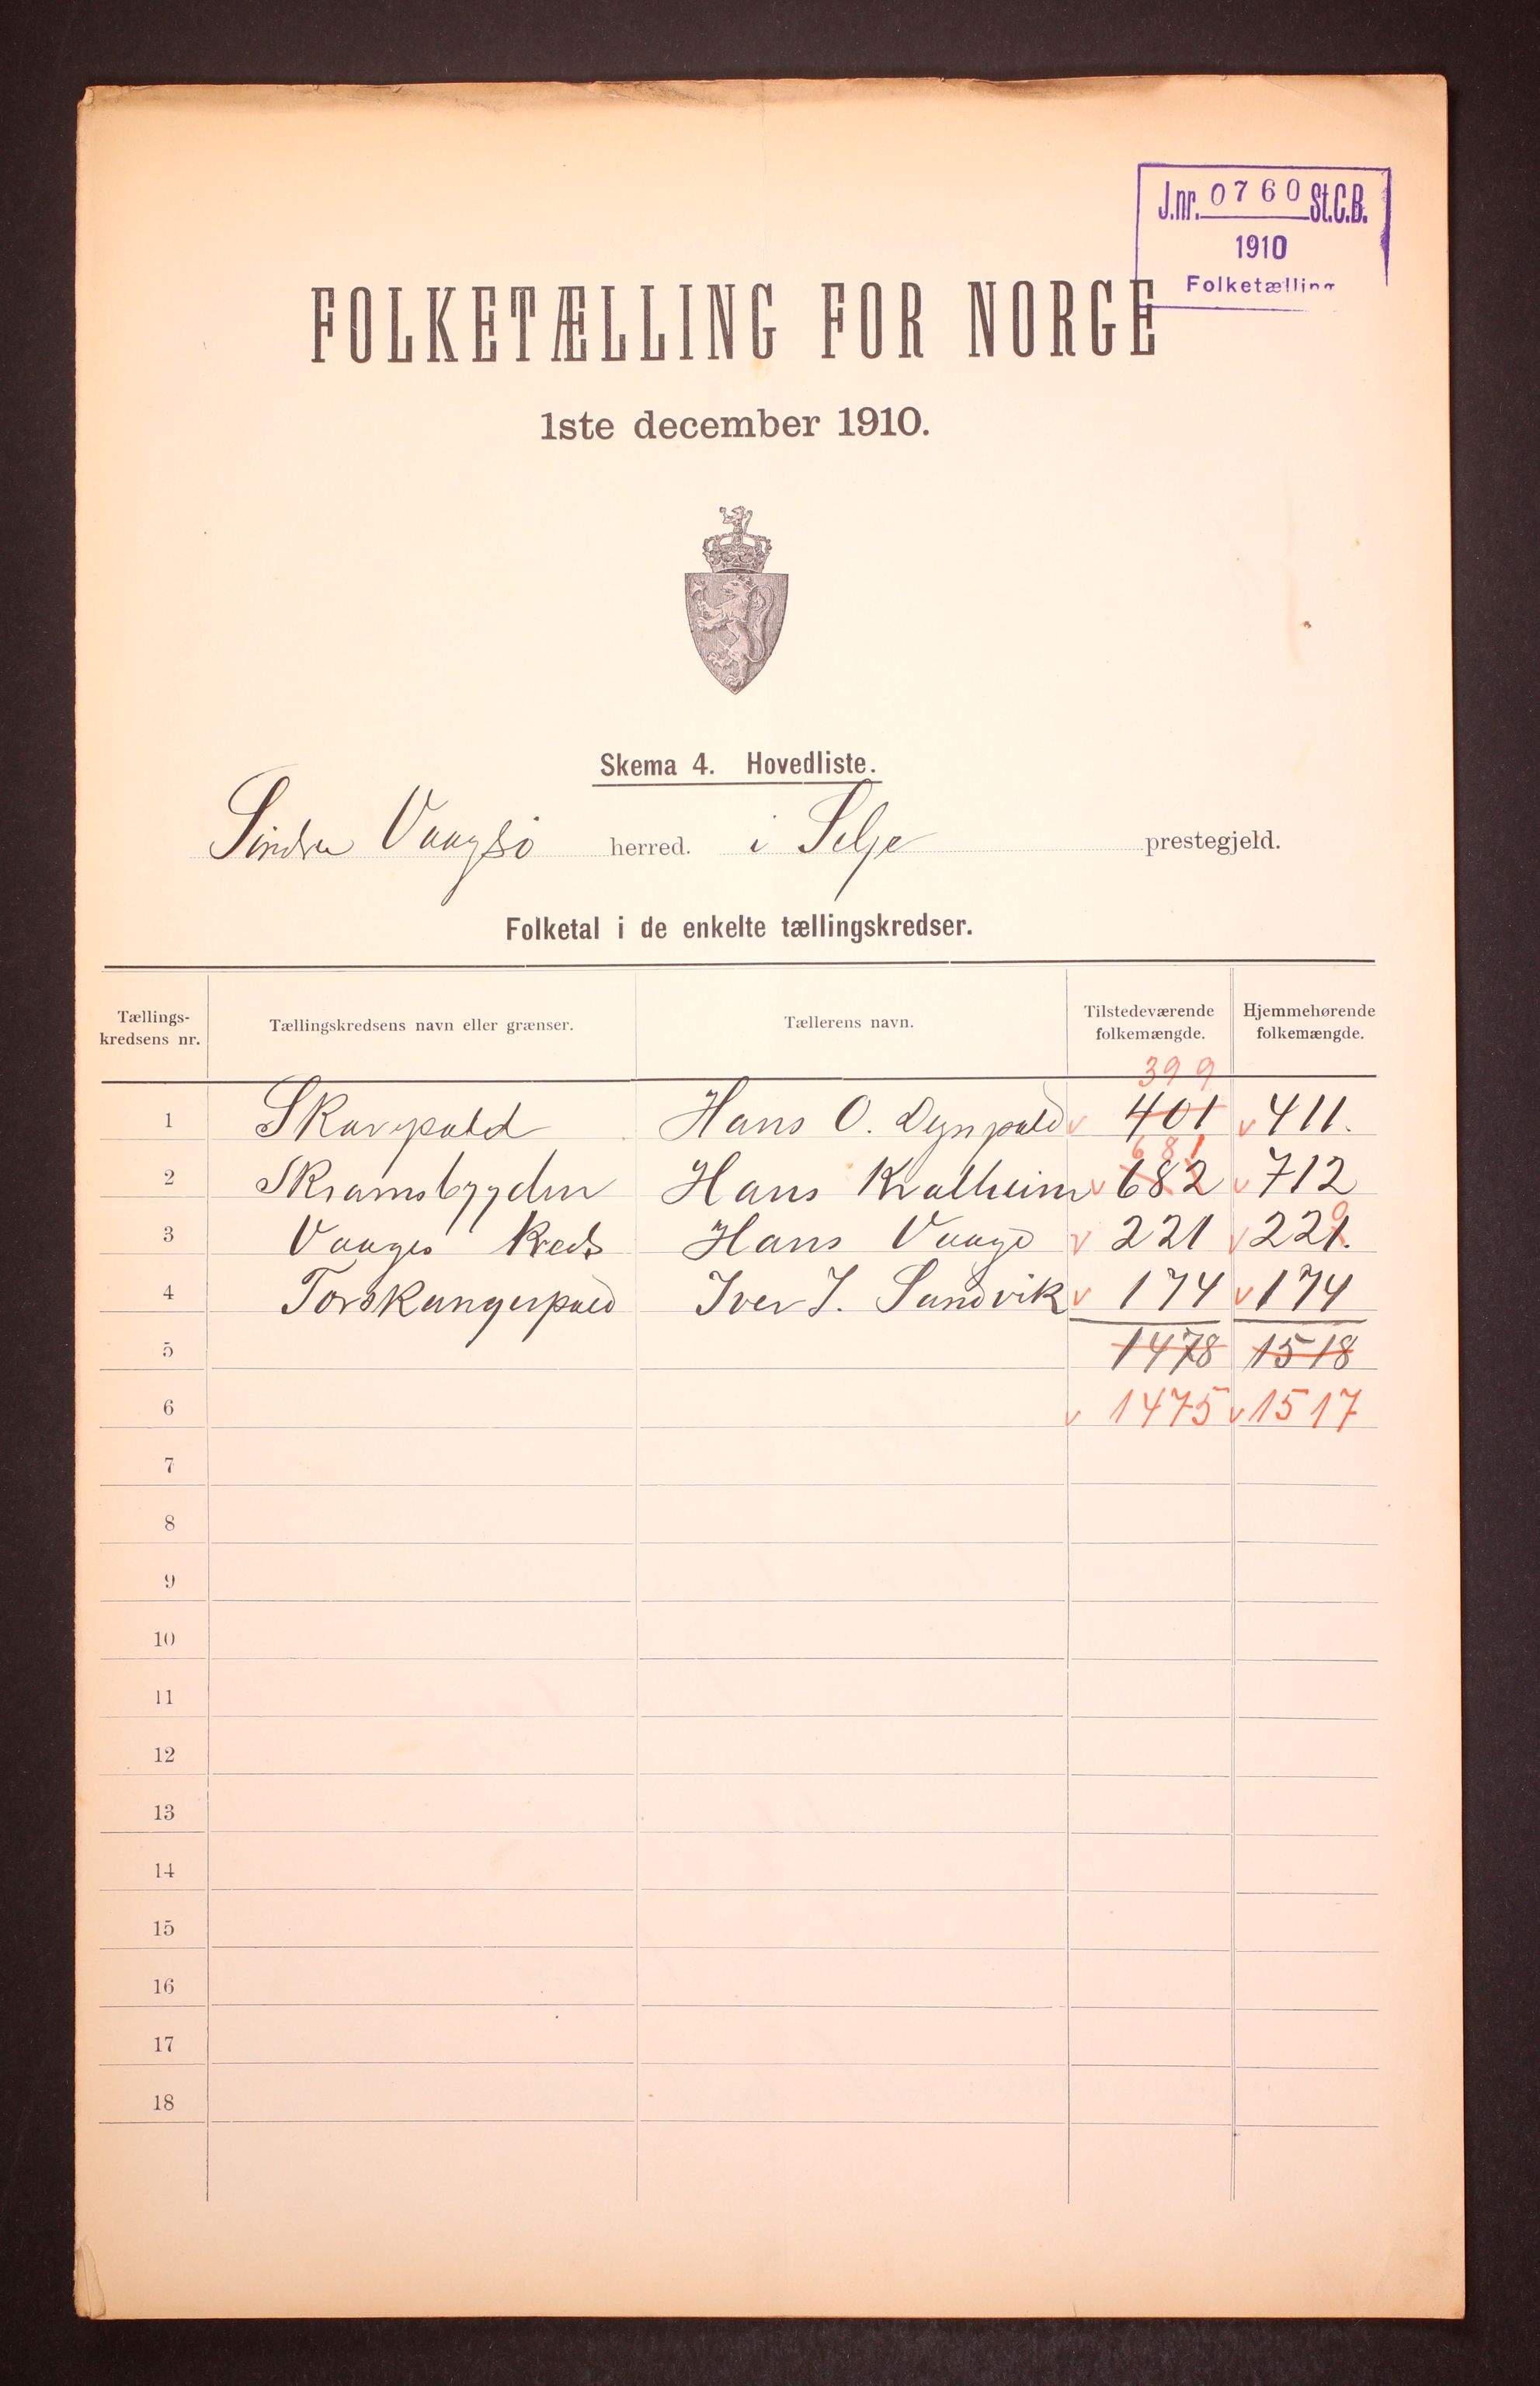 J.nr. 0760 St.C.B.
1910
Folketælling
FOLKETÆLLING FOR NORGE
1ste december 1910.
Skema 4. Hovedliste.
Søndre Vaagsø herred. i Selje prestegjeld.
Folketal i de enkelte tællingskredser.
Tællingskredsens nr. Tællingskredsens navn eller grænser. Tællerens navn. Tilstedeværende folkemængde. Hjemmehørende folkemængde.
399
1 Skavpold Hans O. v 401 v 411.
681
2 Skramsbygden Hans Kvalheim v 682 v 712
0
3 Vaagsø Kreds Hans Vaagø v 221 v 221.
4 Torskangerpold Iver J. Sandvik v 174 v 174
5 1478 1518
6 v 1475 v 1517
7
8
9
10
11
12
13
14
15
16
17
18